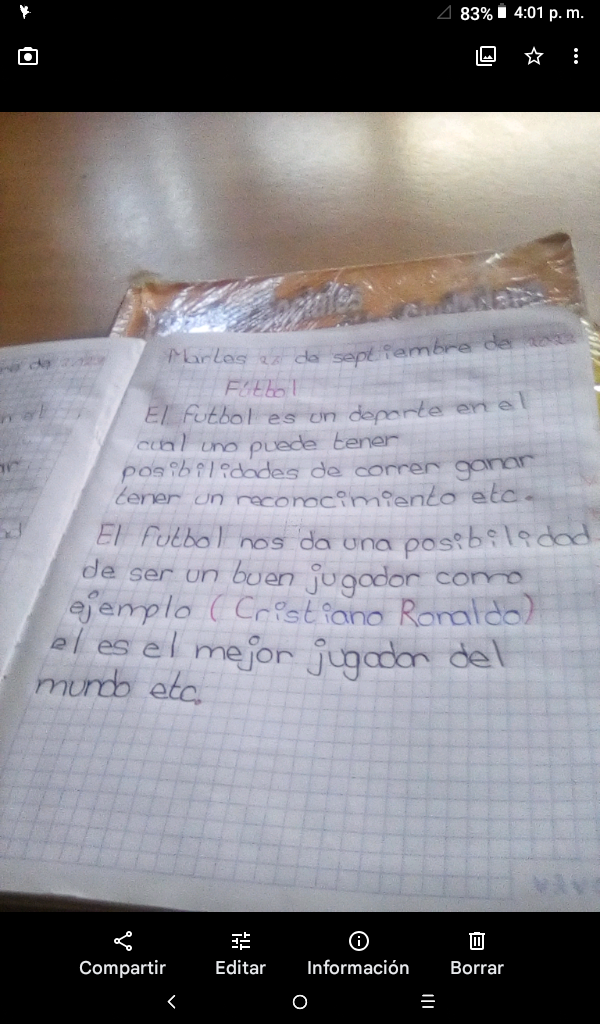 83% 4:01 p. m.
Martes 22 de septiembre de 2022
Fútbol
El futbol es un deporte en el
cual uno puede tener
posibilidades de correr ganar
tener un reconocimiento etc.
El futbol nos da una posibilidad
de ser un buen jugador como
ejemplo (Cristiano Ronaldo)
el es el mejor jugador del
mundo etc.
Compartir Editar Información Borrar